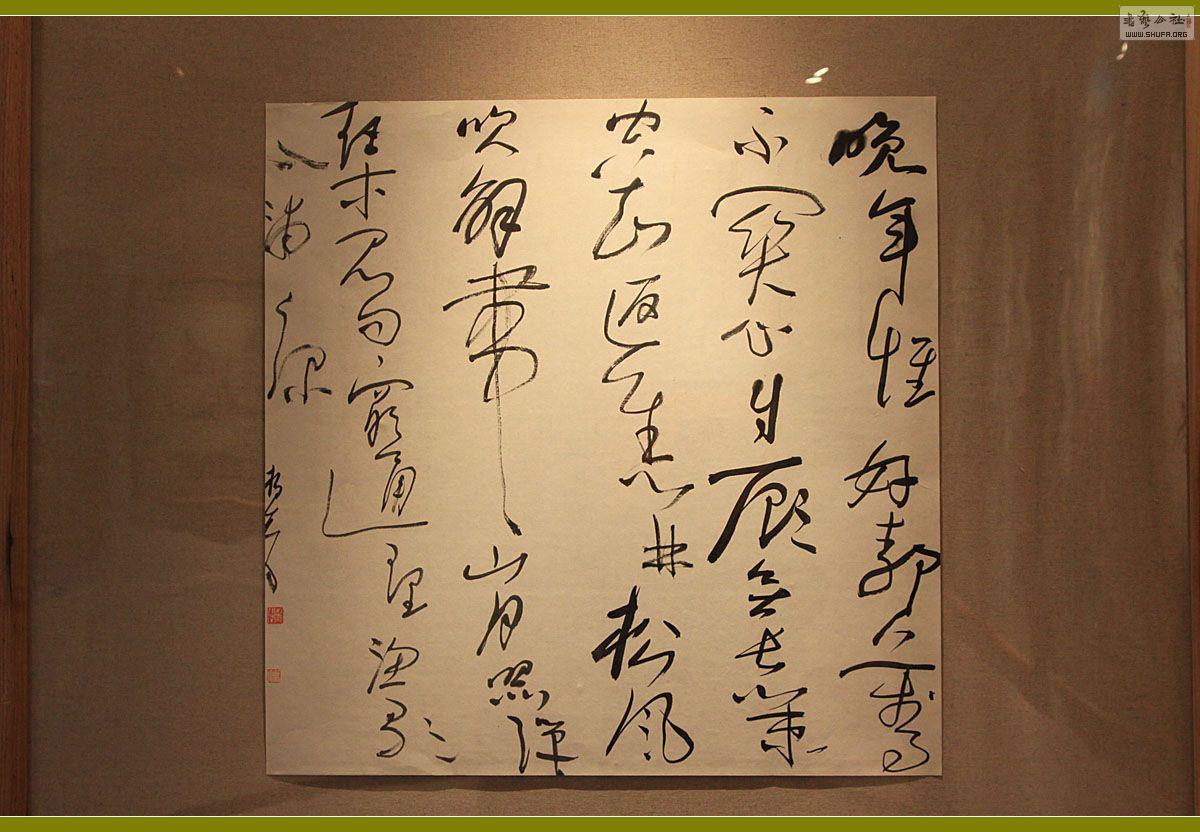 晚年惟好靜萬事
不關心自顧無長策
空知返舊林松風
吹解帶山月照彈
琴君問窮通理漁歌
入浦深
書藝公社
WWW.SHUFA.ORG